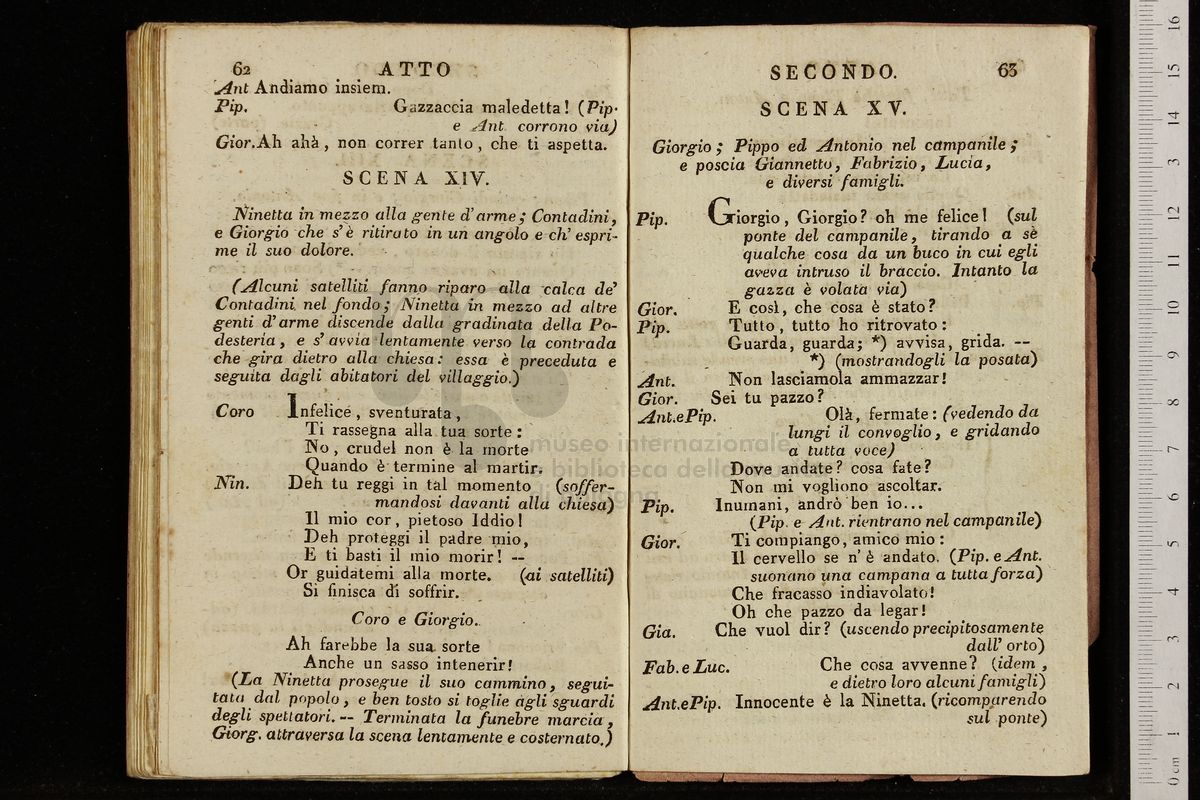 62 ATTO
Ant Andiamo insiem.
Pip. Gazzaccia maledetta! (Pip.
e Ant. corrono via)
Gior. Ah ahà, non correr tanto, che ti aspetta.
SCENA XIV.
Ninetta in mezzo alla gente d'arme; Contadini,
e Giorgio che s'è ritirato in un angolo e ch' espri-
me il suo dolore.
(Alcuni satelliti fanno riparo alla calca de'
Contadini nel fondo; Ninetta in mezzo ad altre
genti d'arme discende dalla gradinata della Po-
desteria, e s' avvia lentamente verso la contrada
che gira dietro alla chiesa: essa è preceduta e
seguita dagli abitatori del villaggio.)
Coro Infelice, sventurata,
Ti rassegna alla tua sorte:
No, crudel non è la morte
Quando è termine al martir.
Nin. Deh tu reggi in tal momento (soffer-
mandosi davanti alla chiesa)
Il mio cor, pietoso Iddio!
Deh proteggi il padre mio,
E ti basti il mio morir! --
Or guidatemi alla morte. (ai satelliti)
Si finisca di soffrir.
Coro e Giorgio.
Ah farebbe la sua sorte
Anche un sasso intenerir!
(La Ninetta prosegue il suo cammino, segui-
tata dal popolo, e ben tosto si toglie agli sguardi
degli spettatori. -- Terminata la funebre marcia,
Giorg. attraversa la scena lentamente e costernato.)
SECONDO. 63
SCENA XV.
Giorgio; Pippo ed Antonio nel campanile;
e poscia Giannetto, Fabrizio, Lucia,
e diversi famigli.
Pip. Giorgio, Giorgio? oh me felice! (sul
ponte del campanile, tirando a sè
qualche cosa da un buco in cui egli
aveva intruso il braccio. Intanto la
gazza è volata via)
Gior. E così, che cosa è stato?
Pip. Tutto, tutto ho ritrovato:
Guarda, guarda; *) avvisa, grida. --
*) (mostrandogli la posata)
Ant. Non lasciamola ammazzar!
Gior. Sei tu pazzo?
Ant. e Pip. Olà, fermate: (vedendo da
lungi il convoglio, e gridando
a tutta voce)
Dove andate? cosa fate?
Non mi vogliono ascoltar.
Pip. Inumani, andrò ben io...
(Pip. e Ant. rientrano nel campanile)
Gior. Ti compiango, amico mio:
Il cervello se n' è andato. (Pip. e Ant.
suonano una campana a tutta forza)
Che fracasso indiavolato!
Oh che pazzo da legar!
Gia. Che vuol dir? (uscendo precipitosamente
dall' orto)
Fab. e Luc. Che cosa avvenne? (idem,
e dietro loro alcuni famigli)
Ant. e Pip. Innocente è la Ninetta. (ricomparendo
sul ponte)
museo internazionale
biblioteca della
0 cm 1 2 3 4 5 6 7 8 9 10 11 12 13 14 15 16